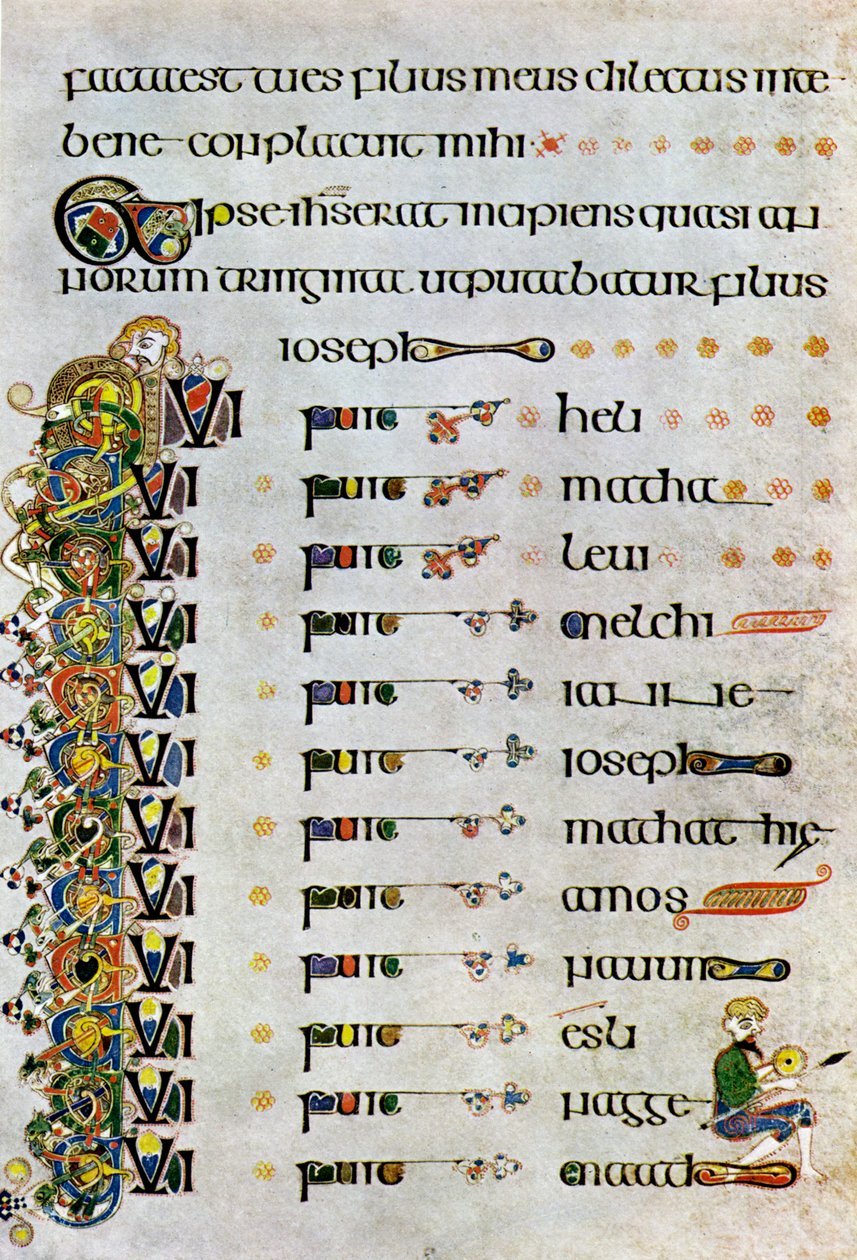 factaest tu es filius meus dilectus inte
bene conplacuit mihi
Et ipse ihs erat incipiens quasi an
norum triginta ut putabatur filius
ioseph
QVI fuit heli
QVI fuit matha
QVI fuit levi
QVI fuit melchi
QVI fuit ianne
QVI fuit ioseph
QVI fuit mathathie
QVI fuit amos
QVI fuit naum
QVI fuit esli
QVI fuit nagge
QVI fuit maath